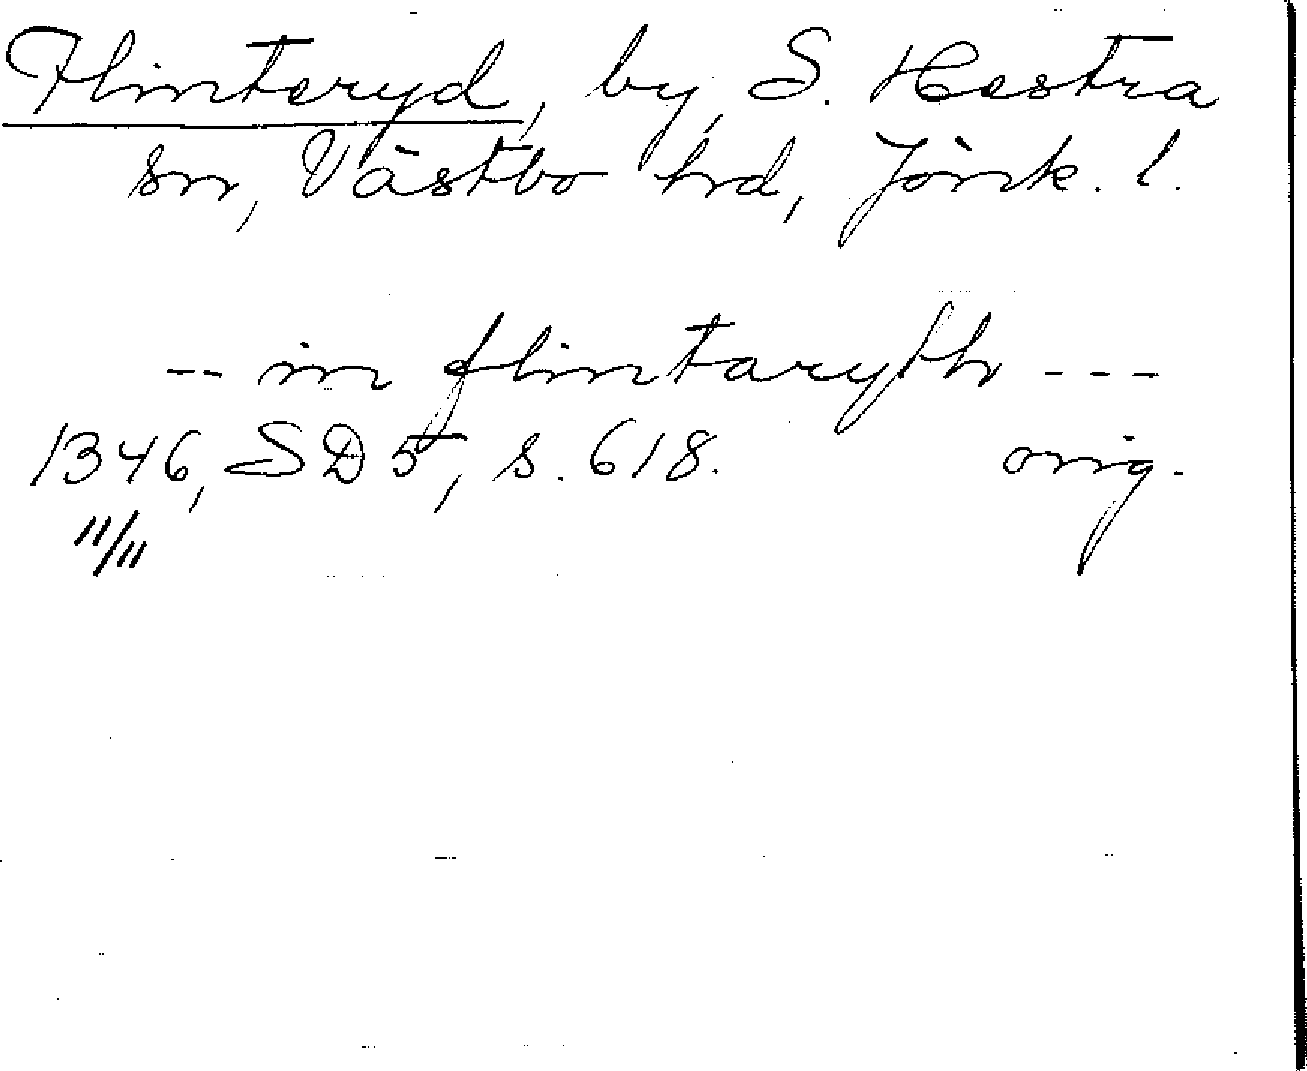 Flinteryd, by, S. Hestra
sn, Västbo hrd, Jönk. l.
-- in flintaryth ---
1346, SD 5, s. 618. orig.
11/11